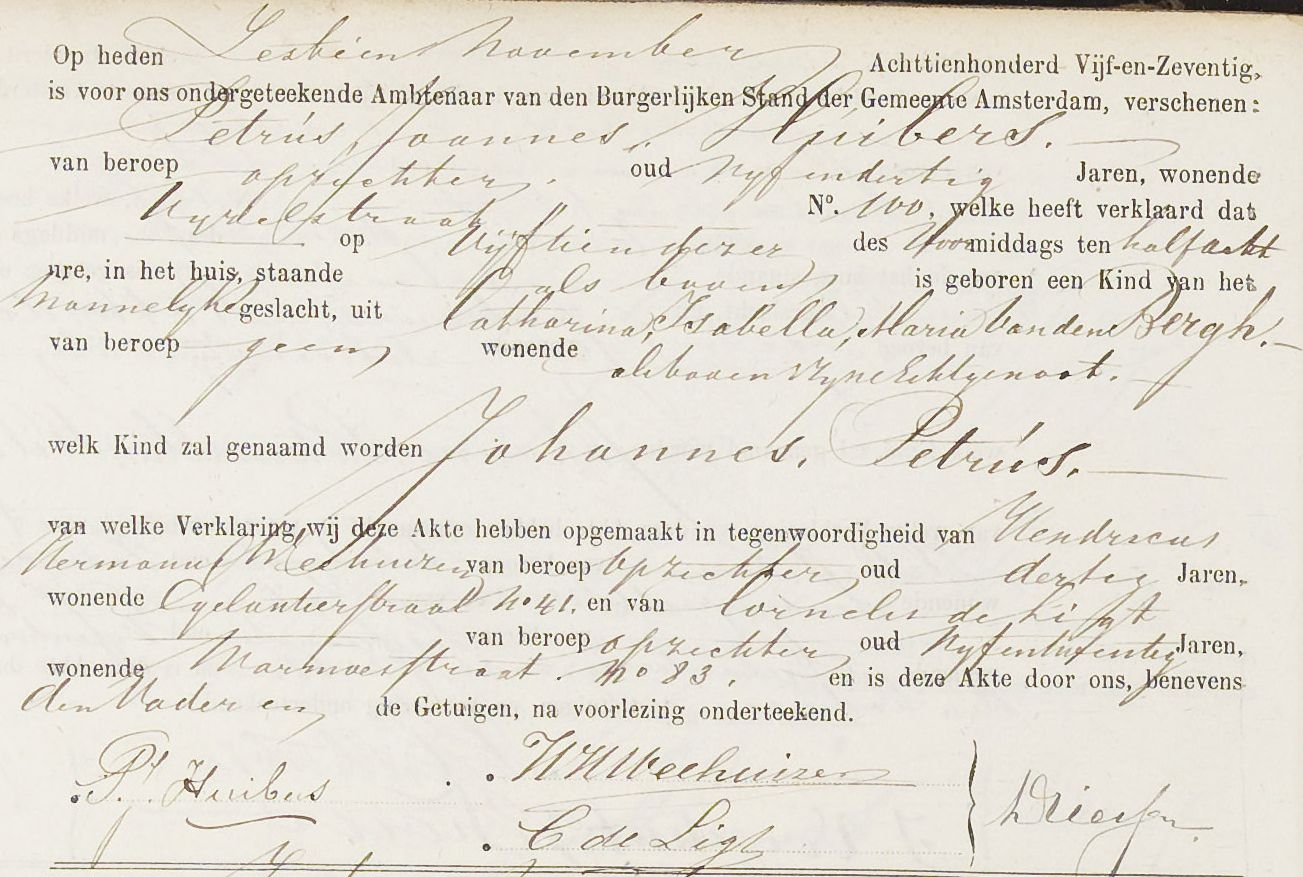 Op heden Zestien November Achttienhonderd Vijf-en-Zeventig,
is voor ons ondergeteekende Ambtenaar van den Burgerlijken Stand der Gemeente Amsterdam, verschenen:
Petrús, Joannes, Húibers.
van beroep opzichter, oud vyfendertig Jaren, wonende
straat No. 100, welke heeft verklaard dat
op Vijftien dezer des Voormiddags ten half acht
ure, in het huis, staande als boven is geboren een Kind van het
Mannelyke geslacht, uit Catharina, Isabella, Maria Van den Bergh.
van beroep geen wonende
als boven zyne Echtgenoot.
welk Kind zal genaamd worden Johannes, Petrús.
van welke Verklaring wij deze Akte hebben opgemaakt in tegenwoordigheid van Hendricus
Hermanus Weehuizen van beroep opzichter oud dertig Jaren,
wonende Egelantierstraat No 41, en van Cornelis de Ligt
van beroep opzichter oud Vyfentwintig Jaren,
wonende Warmoesstraat No 83, en is deze Akte door ons, benevens
den Vader en de Getuigen, na voorlezing onderteekend.
P. J. Huibers HHWeehuizen
C de Ligt